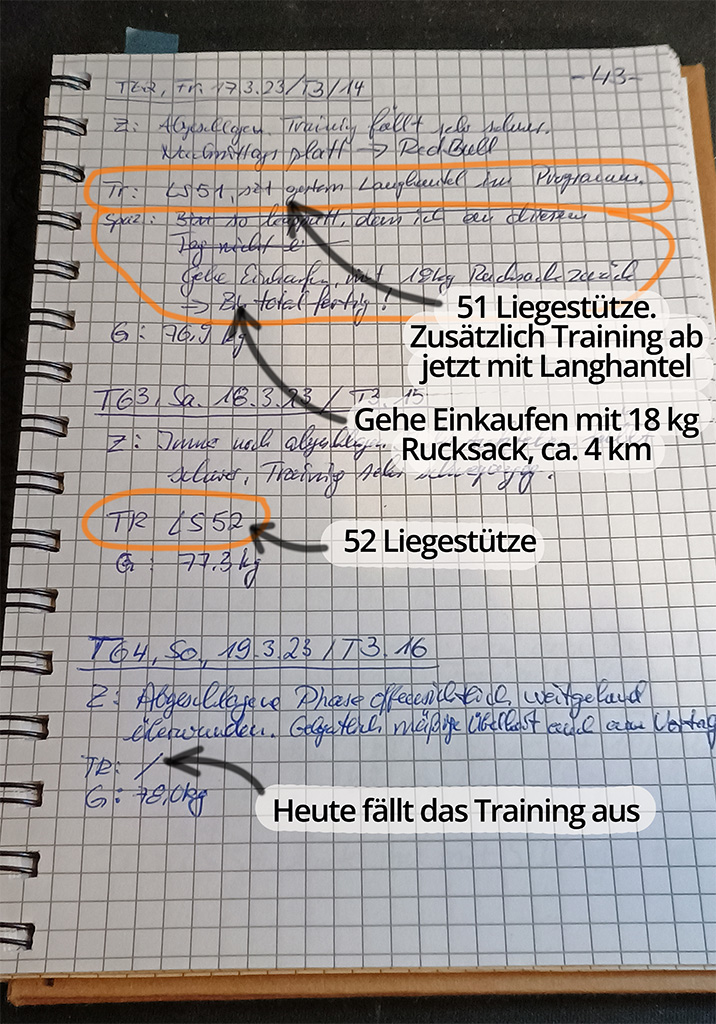 T62, Fr. 17.3.23/T3/14
-43-
Z: Abgeschlagen. Training fällt sehr schwer.
Nachmittags platt → RedBull
Tr: LS51, seit gestern Langhantel im Programm.
Spaz: Bin so kaputt, dass ich an diesem
Tag nicht
Gehe Einkaufen, mit 18kg Rucksack zurück
→ Bin total fertig!
51 Liegestütze.
Zusätzlich Training ab
jetzt mit Langhantel
G: 76,9 kg
T63, Sa. 18.3.23 / T3.15
Gehe Einkaufen mit 18 kg
Rucksack, ca. 4 km
Z: Immer noch abgeschlagen.
schwer, Training sehr
TR LS52
52 Liegestütze
G: 77.3kg
T64, So, 19.3.23 / T3.16
Z: Abgeschlagene Phase offensichtlich weitgehend
überwunden. Gelegentlich mäßige Übelkeit auch am Vortag
TR: /
G: 78,0kg
Heute fällt das Training aus